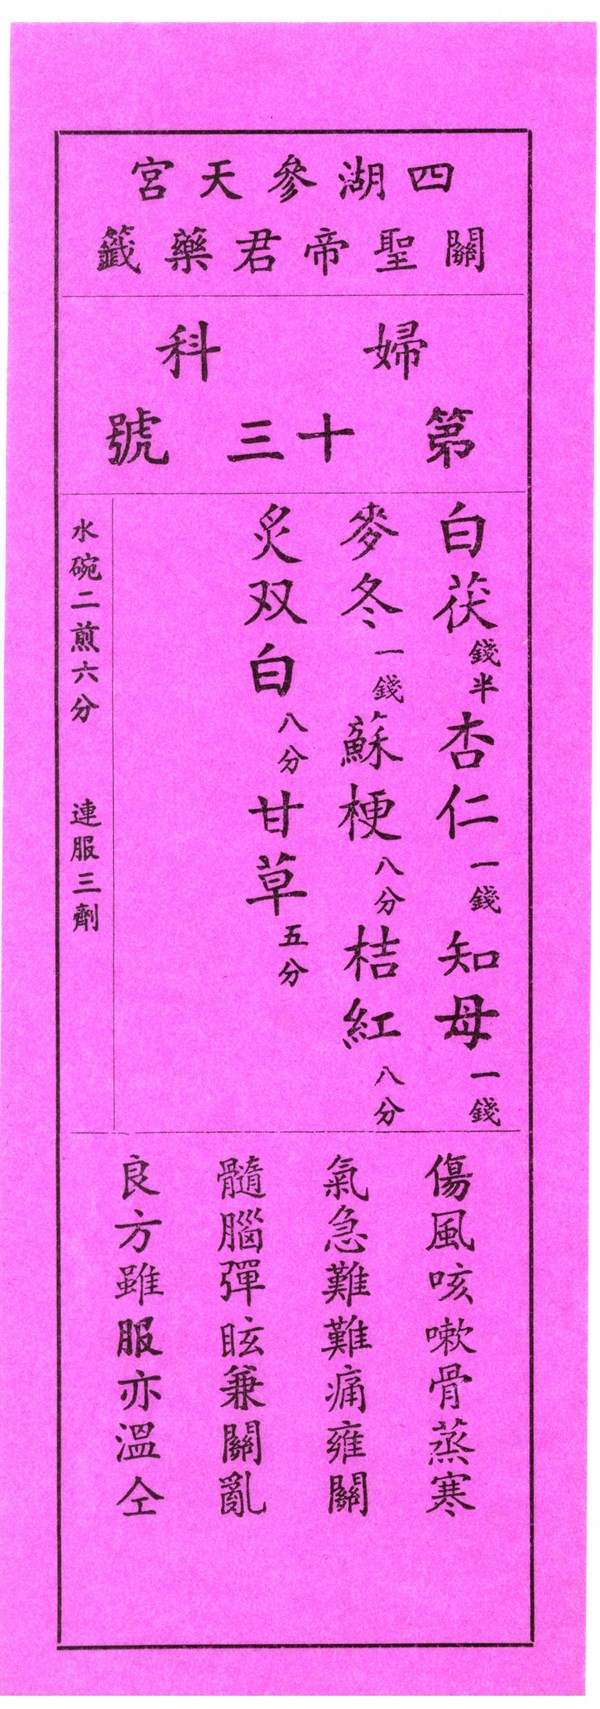 四湖參天宮
關聖帝君藥籤
婦科
第十三號
白茯錢半杏仁一錢知母一錢
麥冬一錢蘇梗八分桔紅八分
炙双白八分甘草五分
水碗二煎六分 連服三劑
傷風咳嗽骨蒸寒
氣急難難痛雍關
髓腦彈眩兼關亂
良方雖服亦溫仝